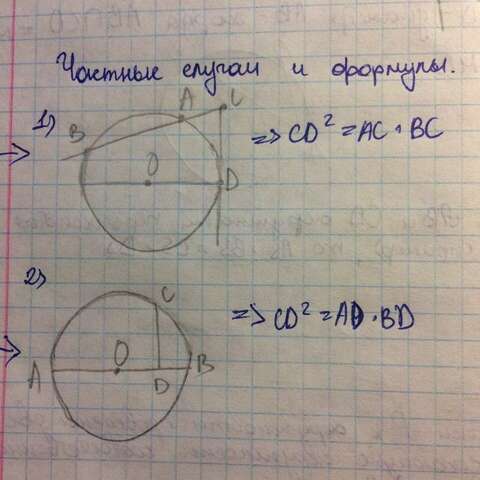 Частные случаи и формулы.
1)
B A C
O D
=> CD² = AC · BC
2)
C
A O D B
=> CD² = AD · BD